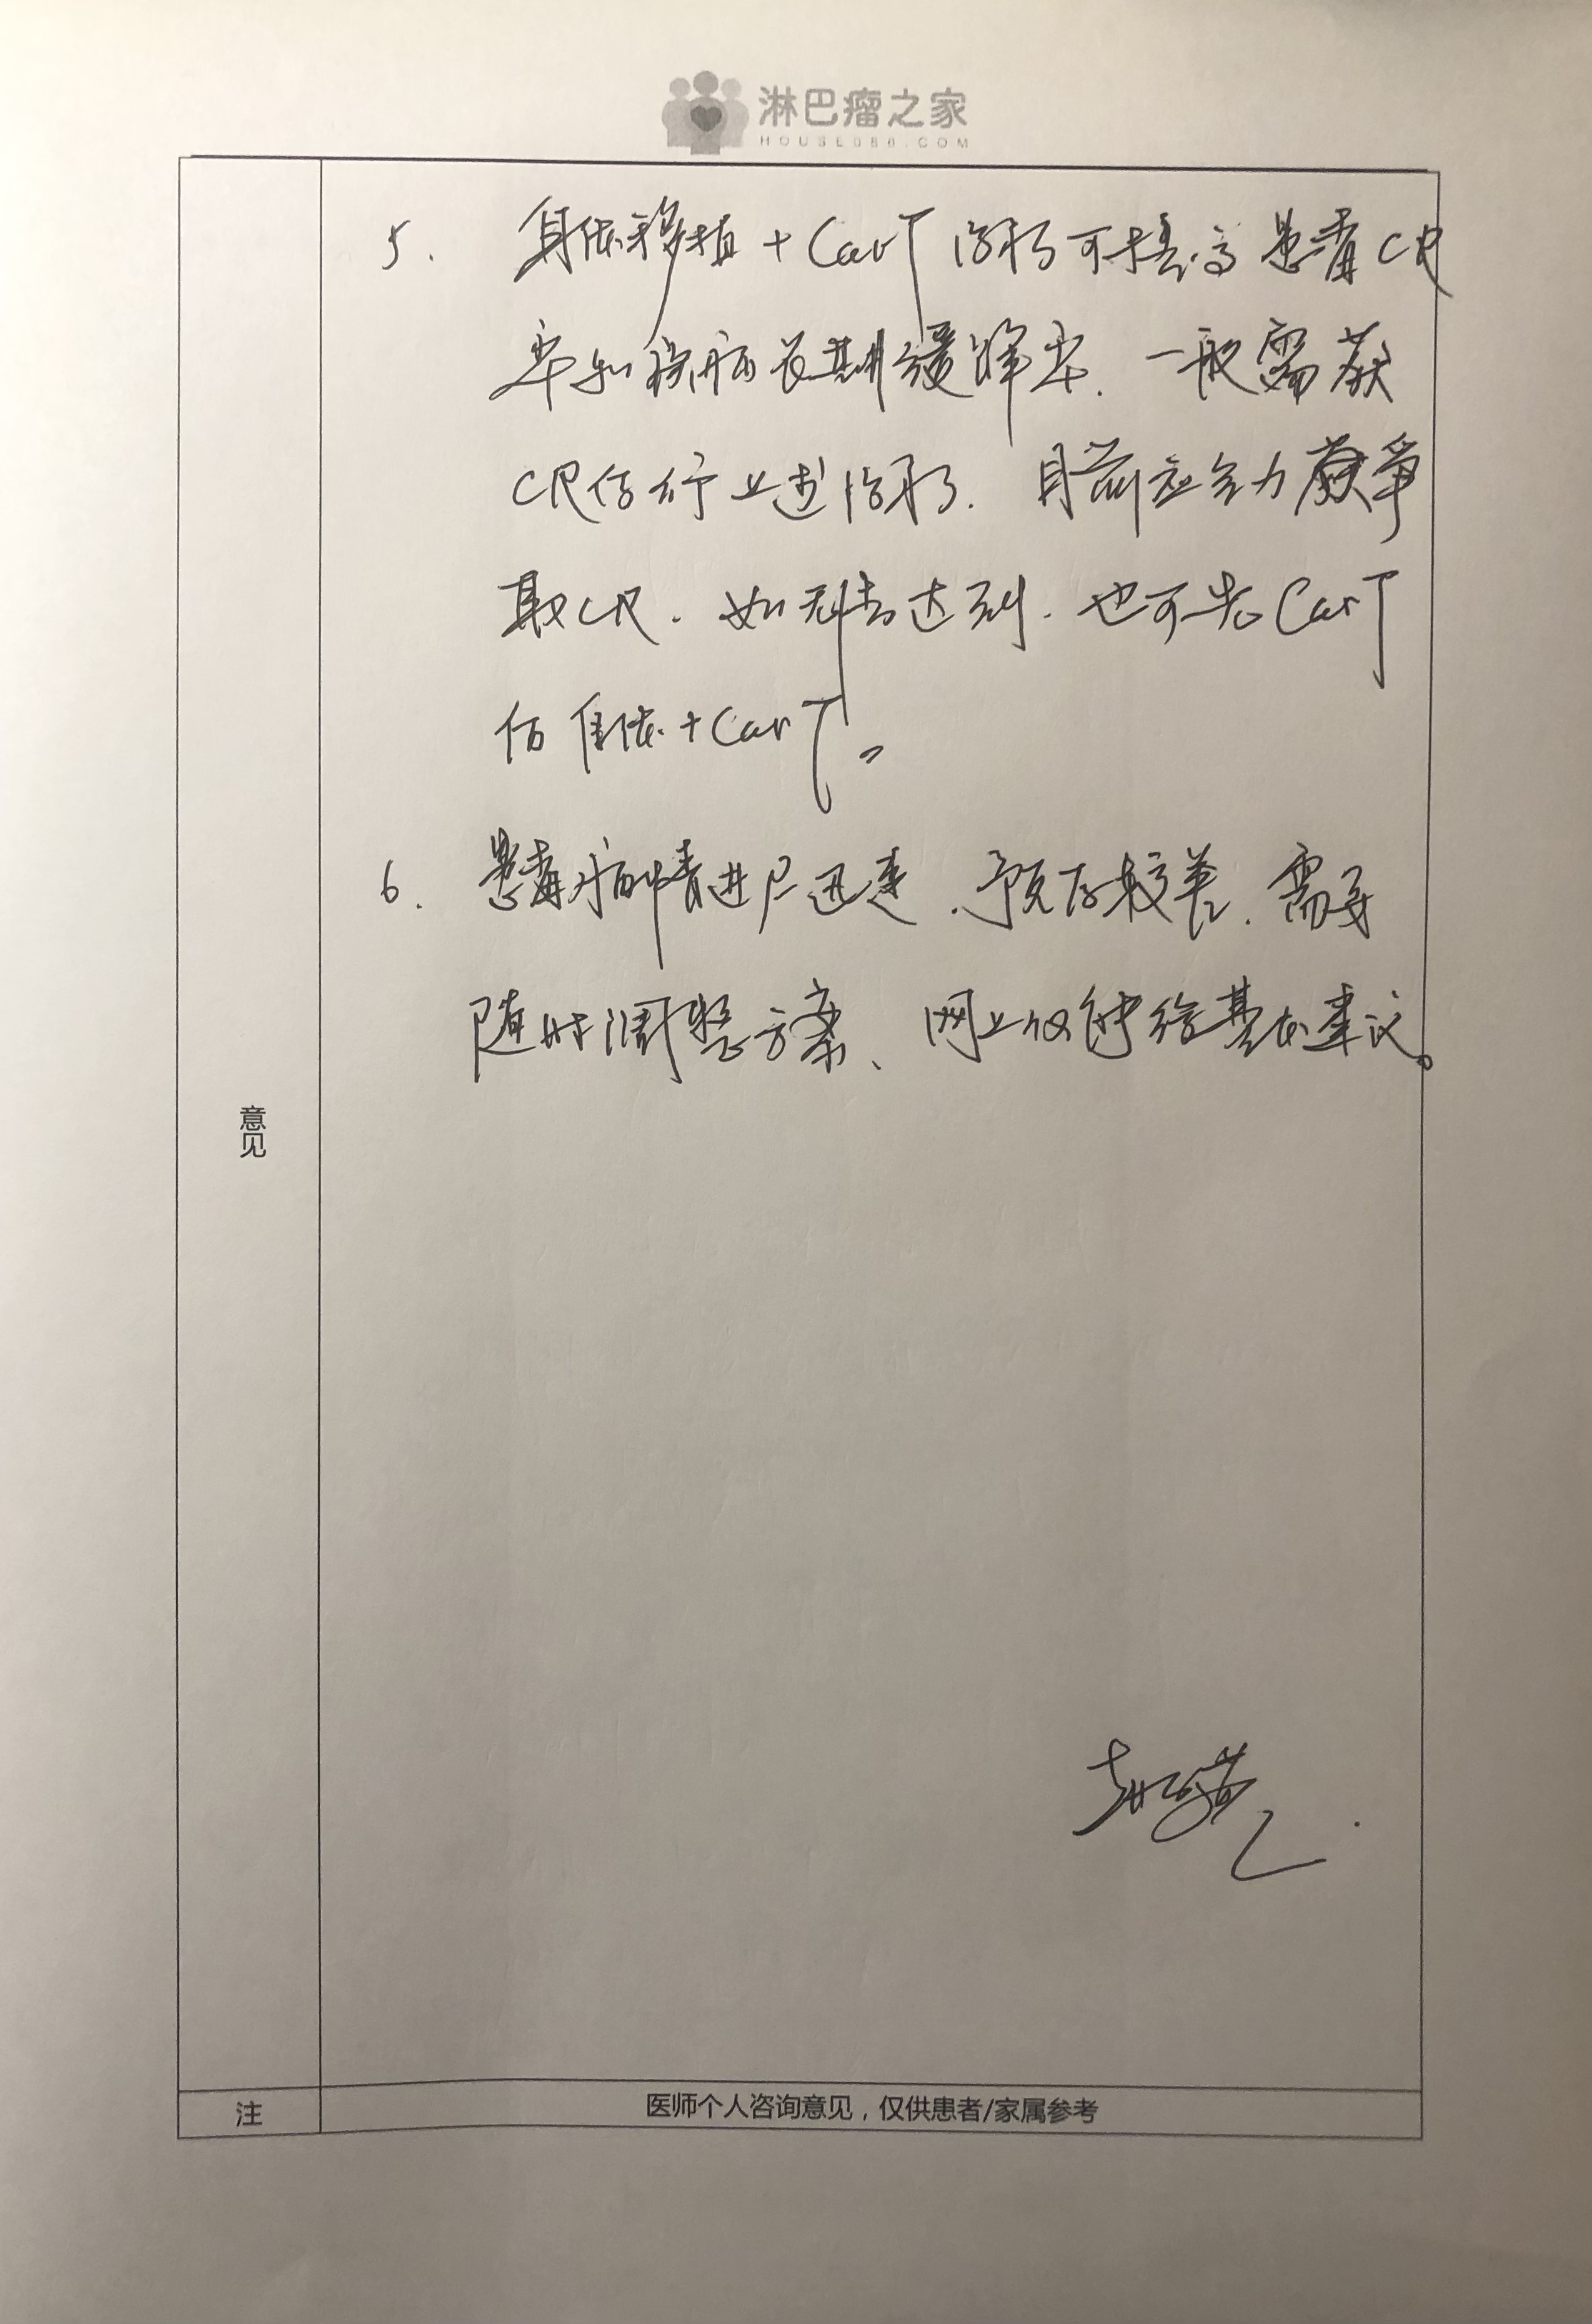 淋巴瘤之家
HOUSE086.COM
5. 自体移植+CarT治疗可提高患者CR
率和疾病长期缓解率. 一般需获
CR后行上述治疗. 目前应全力争
取CR. 如无法达到. 也可先CarT
后自体+CarT。
6. 患者病情进展迅速、预后较差. 需要
随时调整方案、网上仅能给基本建议。
意见
注
医师个人咨询意见，仅供患者/家属参考